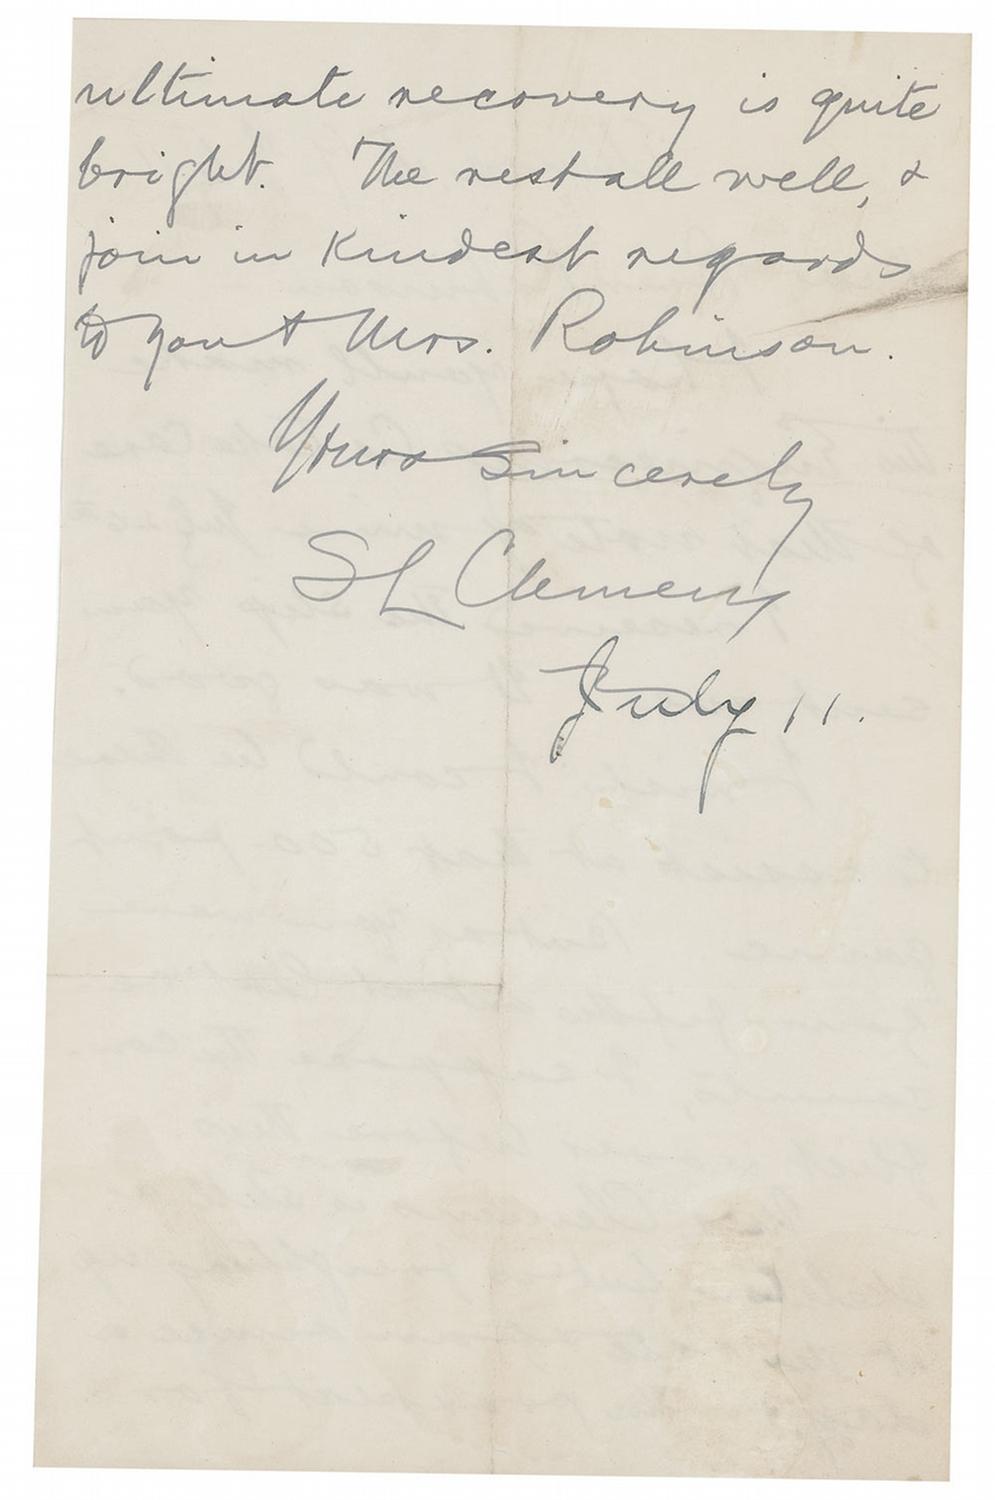 ultimate recovery is quite
bright. The rest all well, &
join in kindest regards
to you & Mrs. Robinson.
Yours sincerely
SL Clemens
July 11.